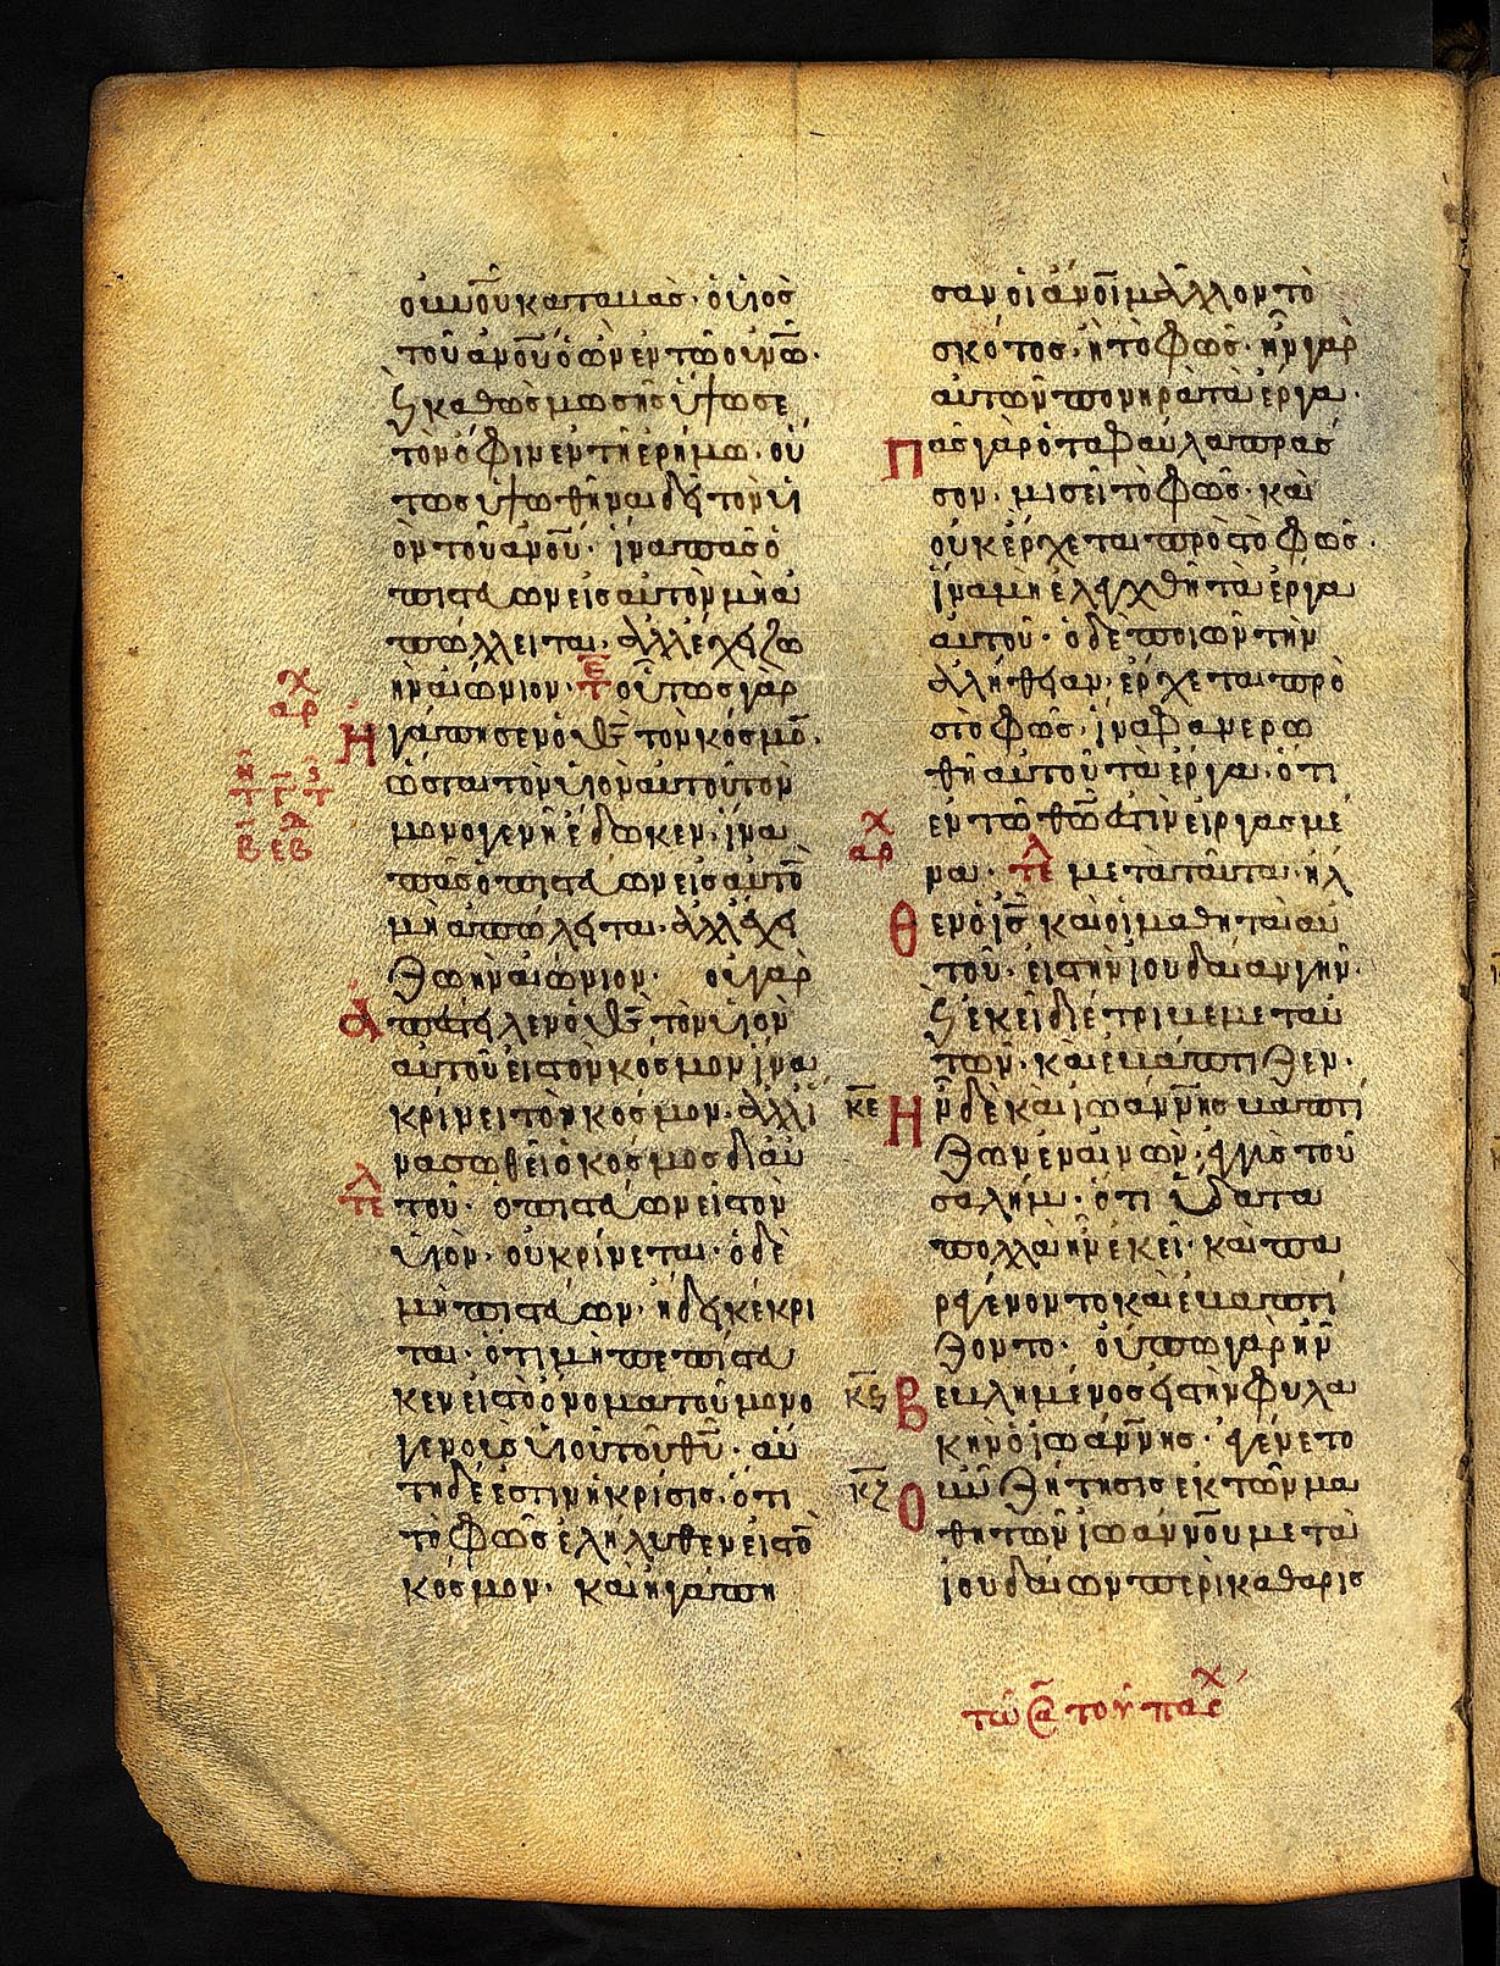 ὀυν͞ου καταβασ· ὁ υἱὸσ
τοῦ ἀν͞ου ὁ ὢν εν τῶ οὐν͞ω·
ϗ καθὼσ μωσῆσ ὕψωσε
τὸν ὄφιν εν τῆ ἐρήμω· οὑ
τωσ ὑψωθῆναι δεῖ τὸν υἱ
ὸν τοῦ ἀν͞ου· ἵνα πασ ὁ
πιστεύων εισ αὐτὸν μὴ ἀ
πώλλειται· ἀλλ ἔχει ζω
ὴν αἰώνιον· τ͞ε οὕτωσ γὰρ
χ
αρ
Ἠγάπησεν ὁ θ͞σ τὸν κόσμο͞·
ὥσται τὸν υἱὸν αὐτοῦ τὸν
μονογενῆ ἔδωκεν· ἵνα
πασ ὁ πιστεύων εισ αὐτο͞
μὴ απώλειται· ἀλλ ἔχει
ζωὴν αἰώνιον· οὐ γὰρ
Ἀπέστειλεν ὁ θ͞σ τὸν υἱὸν
αὐτοῦ εισ τὸν κόσμον ἵνα
κρίνει τὸν κόσμον· ἀλλ ἵ
να σωθεῖ ὁ κόσμοσ δι αὐ
τε͞λ τοῦ· ὁ πιστεύων εισ τὸν
υἱὸν· οὐ κρίνεται· ὁ δὲ
μὴ πιστεύων· ἤδει κέκρι
ται· ὅτι μὴ πεπίστευ
κεν εισ τὸ ὄνομα τοῦ μονο
γενοῦσ υἱοῦ τοῦ θ͞υ· αὕ
τη δέ ἐστιν ἡ κρίσισ· ὅτι
τὸ φῶσ ἐλήλυθεν εισ το͞
κόσμον· καὶ ηγάπη
σαν οἱ ἀν͞οι μᾶλλον τὸ
σκότοσ· ἢ τὸ φῶσ· ἦν γὰρ
αὐτῶν πονηρὰ τὰ ἔργα·
Πασ γὰρ ὁ τα φαύλα πρασ
σον· μισεῖ τὸ φῶσ· καὶ
οὐκ έρχεται πρὸσ τὸ φῶσ·
ἵνα μὴ ἐλεγχθῆ τὰ έργα
αὐτοῦ· ὁ δὲ ποιῶν τὴν
ἀλήθειαν· έρχεται πρὸ
σ τὸ φῶσ· ἵνα φανερω
θῆ αὐτοῦ τὰ έργα· ότι
εν τῶ θ͞ω ἐστὶν ειργασμέ
χ
αρ
να· τε͞λ μετὰ ταῦτα· ῆλ
θεν ὁ ι͞σ καὶ οἱ μαθηταὶ αὐ
τοῦ· εισ τὴν ἰουδαίαν γῆν·
ϗ ἐκεῖ διέτριβε μετ αὐ
τῶν· κὰι ἐβάπτιζεν·
κ͞ε Ἦν δὲ κὰι ἰωάννησ βαπτί
ζων ἐν αινών· ἐγγὺσ τοῦ
σαλήμ· ότι ὕδατα
πολλὰ ῆν ἐκεῖ· κὰι πα
ρεγένοντο κὰι ἐβαπτί
ζοντο· οὔπω γὰρ ἦν
κ͞ϛ Βεβλημένοσ εισ τὴν φυλα
κὴν ὁ ἰωάννησ· ἐγένετο
κ͞ζ Οῦν ζήτησισ ἐκ τῶν μα
θητῶν ἰωάννου μετὰ
ἰουδαίων περὶ καθαρισ